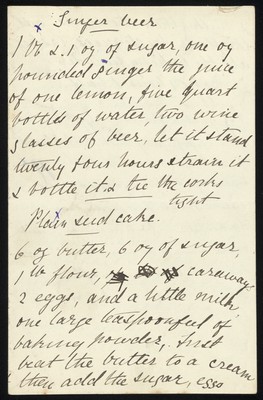 Ginger beer
1 lb & 1 oz of sugar, one oz
pounded ginger the juice
of one lemon, five quart
bottles of water, two wine
glasses of beer, let it stand
twenty four hours strain it
& bottle it & tie the corks
tight
Plain seed cake.
6 oz butter, 6 oz of sugar,
1 lb flour, caraway
2 eggs, and a little milk,
one large teaspoonful of
baking powder, First
beat the butter to a cream
then add the sugar, eggs